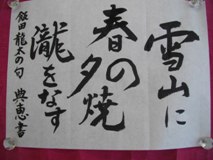 雪山に
春の夕焼
瀧をなす
飯田龍太の句 典恵書